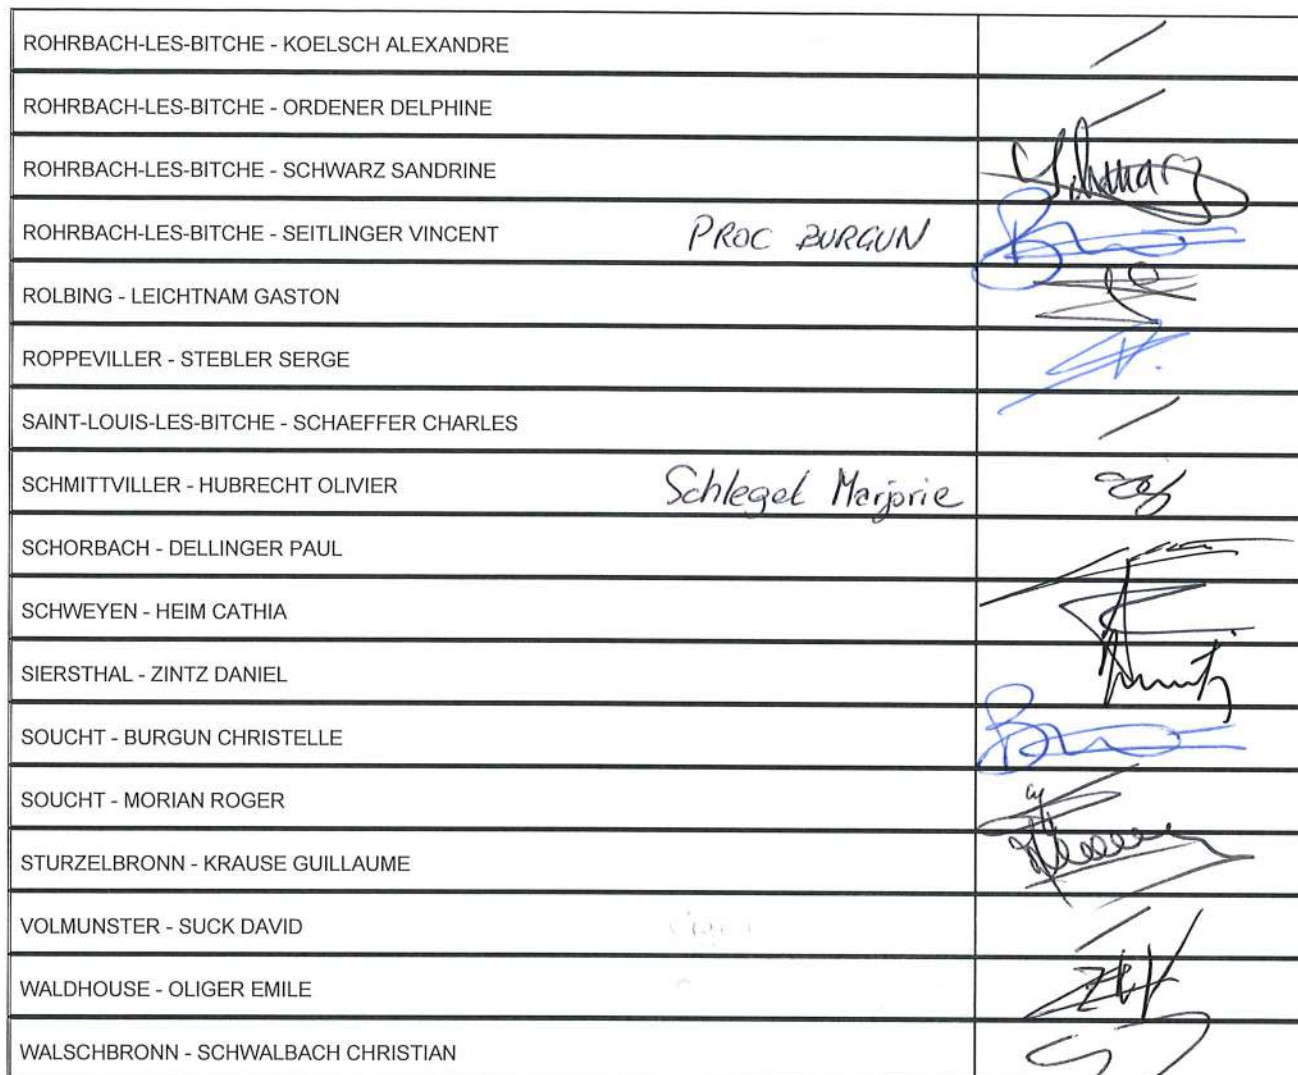 ROHRBACH-LES-BITCHE - KOELSCH ALEXANDRE
ROHRBACH-LES-BITCHE - ORDENER DELPHINE
ROHRBACH-LES-BITCHE - SCHWARZ SANDRINE Schwarz
ROHRBACH-LES-BITCHE - SEITLINGER VINCENT PROC BURGUN
ROLBING - LEICHTNAM GASTON
ROPPEVILLER - STEBLER SERGE
SAINT-LOUIS-LES-BITCHE - SCHAEFFER CHARLES
SCHMITTVILLER - HUBRECHT OLIVIER Schlegel Marjorie
SCHORBACH - DELLINGER PAUL
SCHWEYEN - HEIM CATHIA
SIERSTHAL - ZINTZ DANIEL
SOUCHT - BURGUN CHRISTELLE
SOUCHT - MORIAN ROGER
STURZELBRONN - KRAUSE GUILLAUME
VOLMUNSTER - SUCK DAVID
WALDHOUSE - OLIGER EMILE
WALSCHBRONN - SCHWALBACH CHRISTIAN